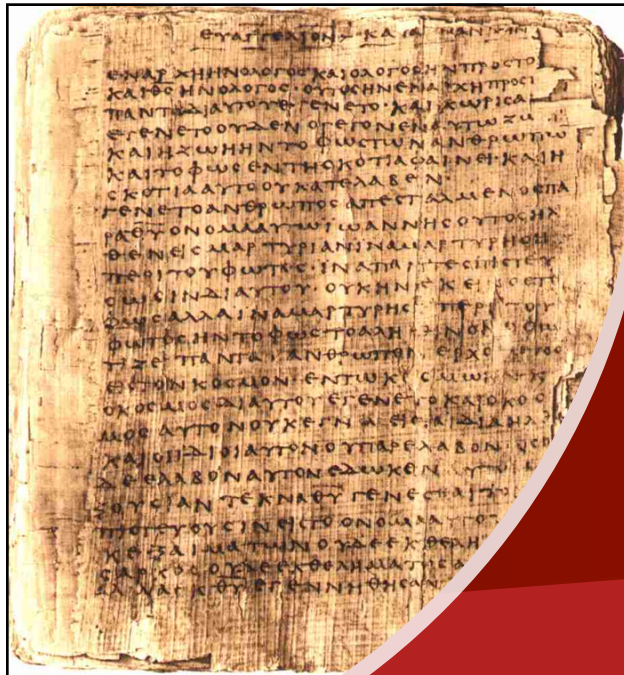 ΕΥΑΓΓΕΛΙΟΝ ΚΑΤΑ ΙΩΑΝΝΗΝ
ΕΝΑΡΧΗΗΝΟΛΟΓΟΣΚΑΙΟΛΟΓΟΣΗΝΠΡΟΣΤΟ
ΚΑΙΘΣΗΝΟΛΟΓΟΣ·ΟΥΤΟΣΗΝΕΝΑΡΧΗΠΡΟΣ
ΠΑΝΤΑΔΙΑΥΤΟΥΕΓΕΝΕΤΟ·ΚΑΙΧΩΡΙΣΑ
ΕΓΕΝΕΤΟΟΥΔΕΝΟΓΕΓΟΝΕΝΑΥΤΩΖΩ
ΚΑΙΗΖΩΗΗΝΤΟΦΩΣΤΩΝΑΝΘΡΩΠΩ
ΚΑΙΤΟΦΩΣΕΝΤΗΣΚΟΤΙΑΦΑΙΝΕΙ·ΚΑΙΗ
ΣΚΟΤΙΑΑΥΤΟΟΥΚΑΤΕΛΑΒΕΝ·
ΓΕΝΕΤΟΑΝΘΡΩΠΟΣΑΠΕΣΤΑΛΜΕΝΟΣΠΑ
ΡΑΘΥΟΝΟΜΑΑΥΤΩΙΩΑΝΝΗΣΟΥΤΟΣΗΛ
ΘΕΝΕΙΣΜΑΡΤΥΡΙΑΝΙΝΑΜΑΡΤΥΡΗΣΗ
ΠΕΡΙΤΟΥΦΩΤΟΣ·ΙΝΑΠΑΝΤΕΣΠΙΣΤΕΥ
ΣΩΣΙΝΔΙΑΥΤΟΥ ΟΥΚΗΝΕΚΕΙΝΟΣΤΟ
ΦΩΣΑΛΛΑΙΝΑΜΑΡΤΥΡΗΣΗΠΕΡΙΤΟΥ
ΦΩΤΟΣΗΝΤΟΦΩΣΤΟΑΛΗΘΙΝΟΝΟΦΩ
ΤΙΖΕΙΠΑΝΤΑΑΝΘΡΩΠΟΝΕΡΧΟ
ΕΙΣΤΟΝΚΟΣΜΟΝ·ΕΝΤΩΚΟΣΜΩΗΝΚ
ΟΚΟΣΜΟΣΔΙΑΥΤΟΥΕΓΕΝΕΤΟΚΑΙΟΚΟΣ
ΜΟΣΑΥΤΟΝΟΥΚΕΓΝΩΕΙΣΤΑΙΔΙΑΗΛ
ΚΑΙΟΙΙΔΙΟΙΑΥΤΟΝΟΥΠΑΡΕΛΑΒΟΝΟΣΟΙ
ΔΕΕΛΑΒΟΝΑΥΤΟΝΕΔΩΚΕΝΑΥΤΟΙ
ΞΟΥΣΙΑΝΤΕΚΝΑΘΥΓΕΝΕΣΘΑΙΤΟ
ΠΙΣΤΕΥΟΥΣΙΝΕΙΣΤΟΟΝΟΜΑΑΥΤΟΥ
ΚΕΞΑΙΜΑΤΩΝΟΥΔΕΕΚΘΕΛΗ
ΣΑΡΚΟΣΟΥΔΕΕΚΘΕΛΗΜΑΤΟΣΑ
ΑΛΛΑΕΚΘΥΕΓΕΝΝΗΘΗΣΑΝ